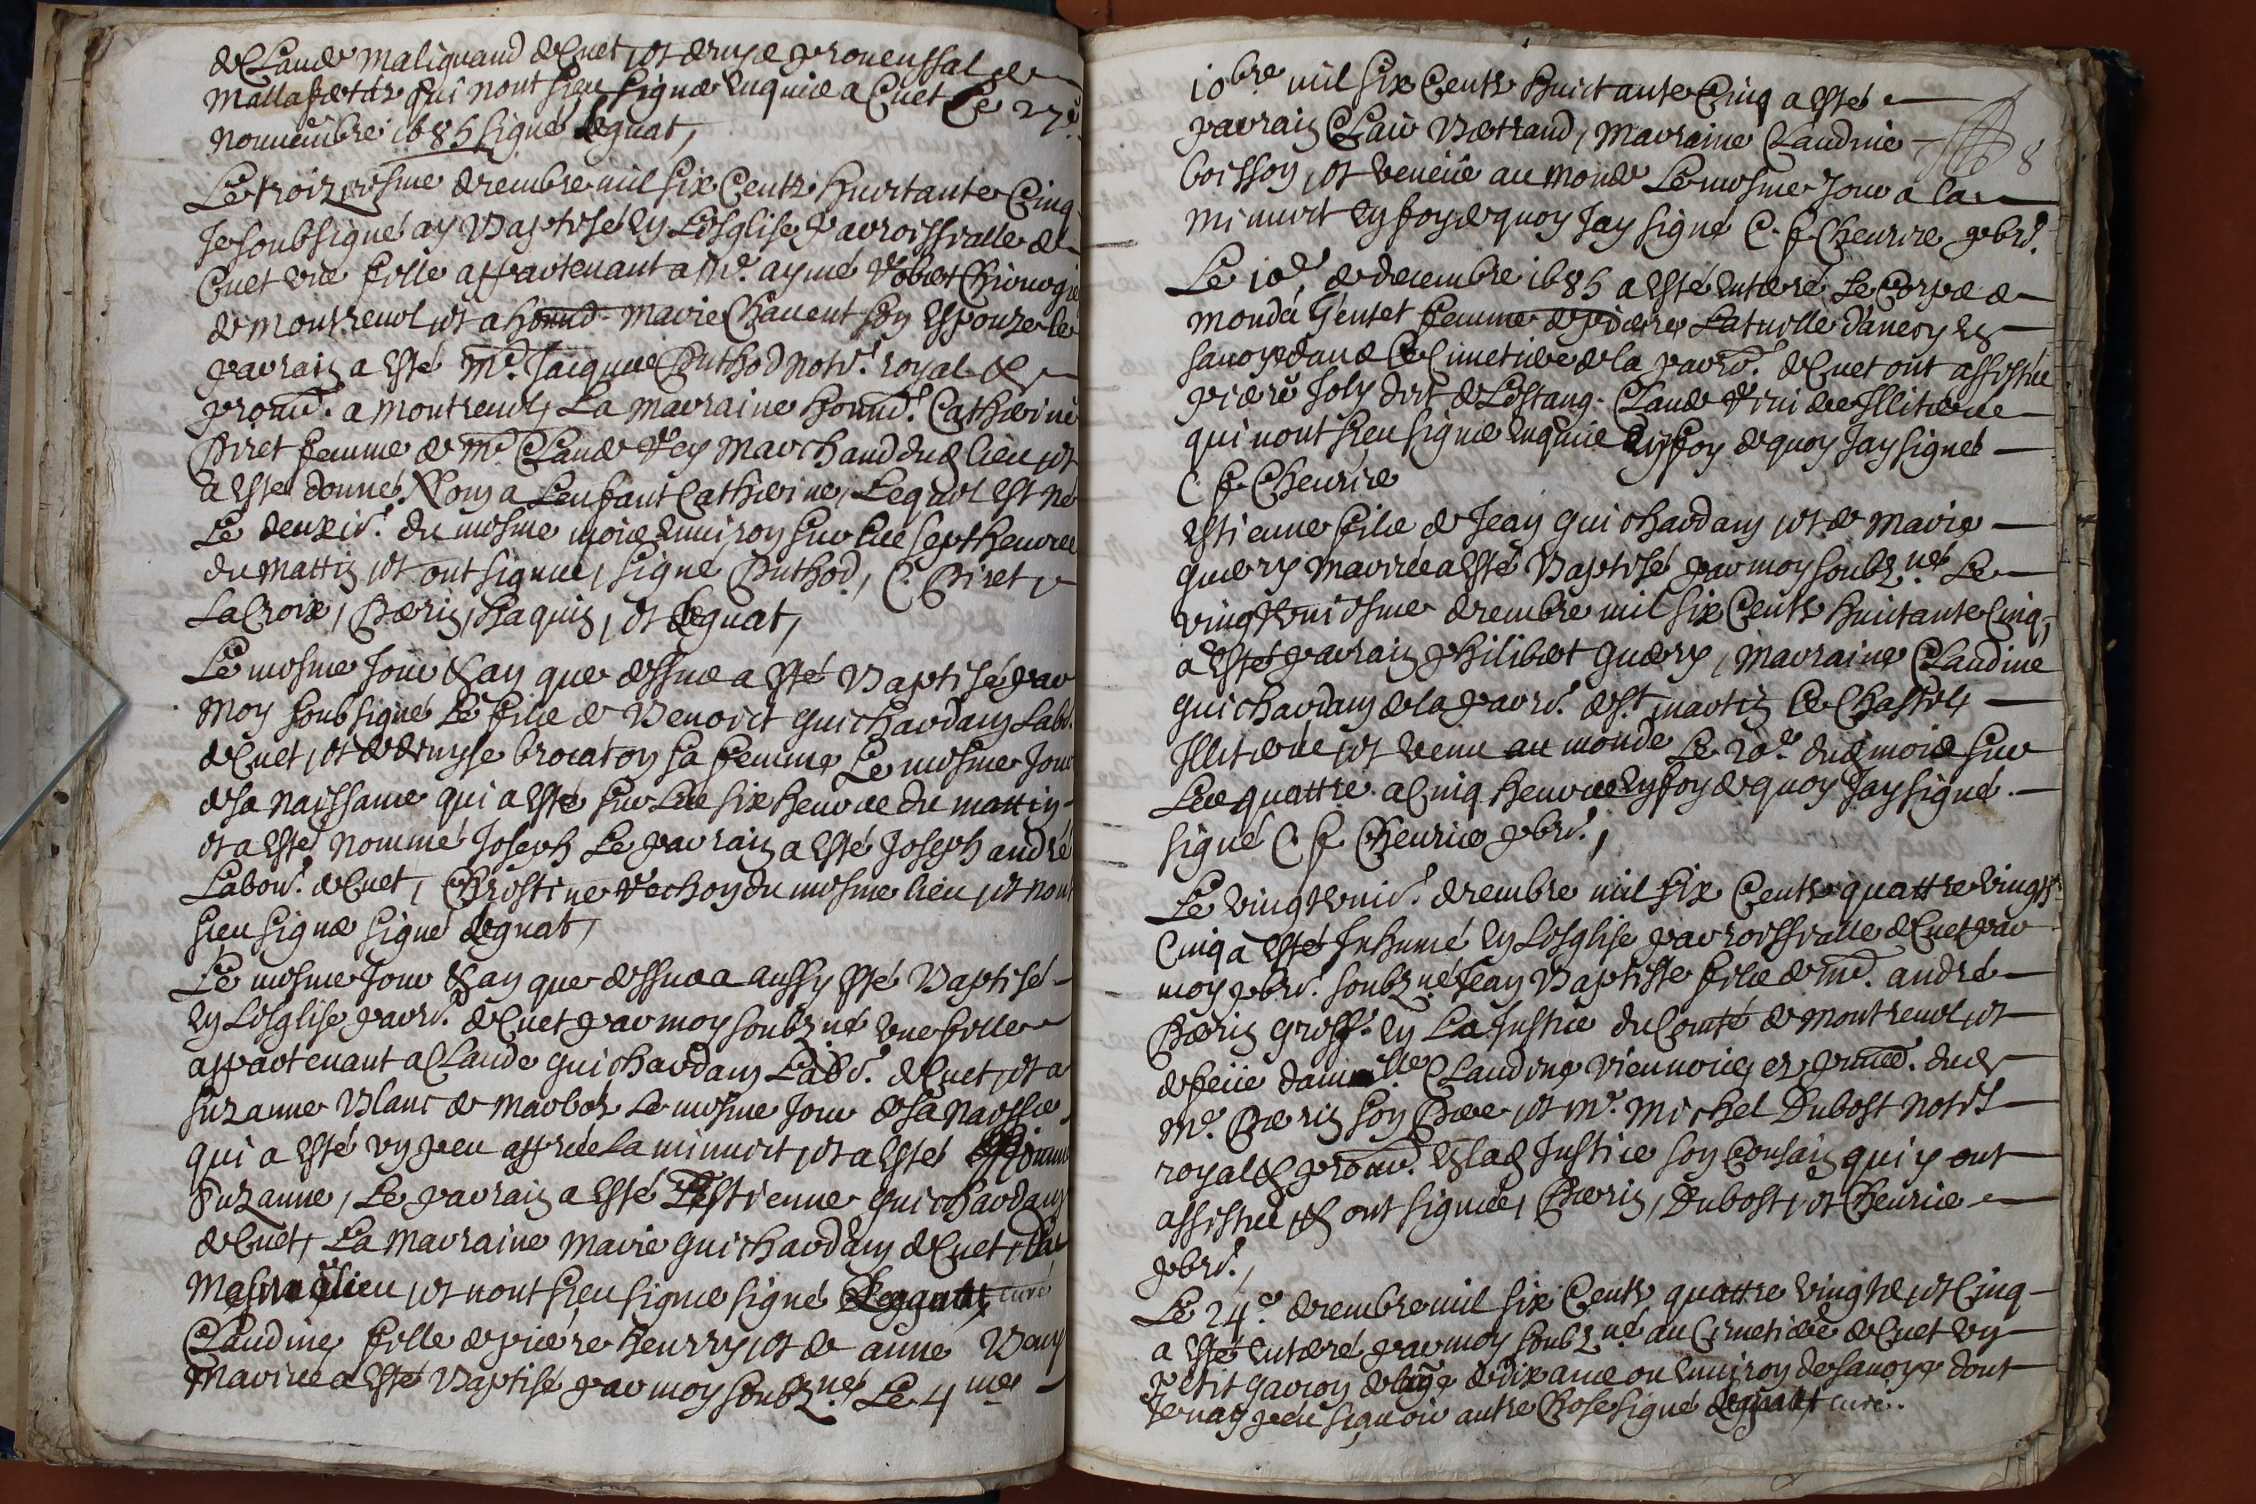 de Claude Maliquand de Cuet, et denyse prouenssal de
Mallafretaz qui nont sceu signer enquis a Cuet Le 27e
nouuembre 1685 signé Legnat,
Le troiziesme decembre mil six Cents huictante Cinq
Je soubsigné ay Baptisé en Lesglise parroissialle de
Cuet une fille appartenant a Me. aymé Robert Chirurgie
de Montreuel et a honnd. Marie Chanent son Espouze le
parrain a esté Me. Jacques Buthod Notre. royal &
procur. a Montreuel, La marraine honnd. Catherine
Piret femme de Me. Claude Rey Marchand dud lieu, et
a Esté donné Nom a Lenfant Catherine, Lequel est né
Le deuxie. du mesme mois enuiron sur Les sept heures
du mattin et ont signés, signé Buthod, C. Piret,
LaCroix, Perrin, Chaquin, et Legnat,
Le mesme Jour & an que dessus a esté Baptisé par
Moy soubsigné Le fils de Benoict guichardan Labr.
de Cuet, et de denysse brocaton sa femme Le mesme Jour
de sa Naissance qui a esté sur Les six heures du mattin
et a Esté nommé Joseph Le parrain a esté Joseph andré
Labour. de Cuet, Christine Rechon du mesme lieu, et nont
sceu signer signé Legnat,
Le mesme Jour & an que dessus a aussy esté Baptisé
en Lesglise parr. de Cuet par moy soubz.né une fille
appartenant a Claude guichardan Labr. de Cuet, et a
suzanne Blanc de Marboz Le mesme Jour de sa Naissce
qui a esté un peu apprès La minuict, et a esté nommé
Suzanne, Le parrain a esté Estienne guichardan
de Cuet, La Marraine Marie guichardan de Cuet,
Mesme lieu et nont sceu signer signé Legnat, curé
Claudine fille de pierre heurry, et de anne Bouy
Mariés a esté Baptisé par moy soubz.né Le 4me
10bre mil six Cents huictante Cinq a esté
parrain Clair Bertrand, Marraine Claudine
boisson, et veneüe au monde Le mesme Jour a la
minuict en foy de quoy Jay signé C. f. Cheurier pbre.
8
Le 10e. de decembre 1685 a esté enterré Le Corps de
monde Gentet femme de pierre Laturlle danecy en
sauoye dans Le Cimetiere de la parro. de Cuet ont assistés
pierre Joly dict de Lestang. Claude Viui des Illitterés
qui nont sceu signer enquis En foy de quoy Jay signé
C. f. Cheurier
Estienne fils de Jean guichardan, et de Marie
guerry mariés a esté Baptisé par moy soubz.né Le
vingt uniesme decembre mil six Cents huictante Cinq,
a Esté parrain philibert guerry, Marraine Claudine
guichardan de la parr. de st. martin Le Chastel,
Illiterés, et venu au monde Le 20e. dud mois sur
Les quattre a Cinq heures en foy de quoy Jay signé.
signé C. f. Cheurier pbre.,
Le vingt unie. decembre mil six Cents quattre vingts
Cinq a esté Inhumé en Lesglise parroissialle de Cuet par
moy pbre. soubz.né Jean Baptiste fils de me. andré
Perrin greff. en La Justice du Comté de Montreuel, et
de feüe damlle. Claudine viennois es pnce. dud
Me. Perrin son Pere, et Me. Michel Dubost Notre
royal & procur. en lad Justice son Cousin qui y ont
assistés, et ont signés, Perrin, Dubost, et Cheurier
pbre.,
Le 24e. decembre mil six Cents quattre vingts, et Cinq
a esté enterré par moy soubz.né au Cimetiere de Cuet un
petit garçon de laage de dix ans ou enuiron de sauoye dont
Je nay peu sçauoir autre Chose signé Legnat, curé.